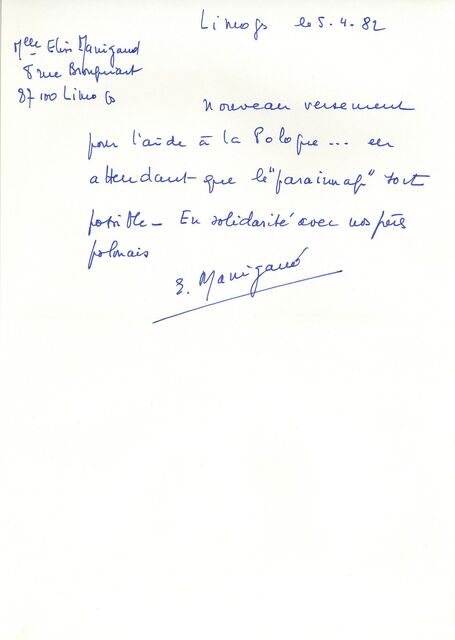 Limoges le 5.4.82
Mlle Elise Manigaud
8 rue Brongniart
87100 Limoges
Nouveau versement
pour l'aide à la Pologne... en
attendant que le "parainnage" soit
possible - En solidarité avec nos frères
polonais
E. Manigaud